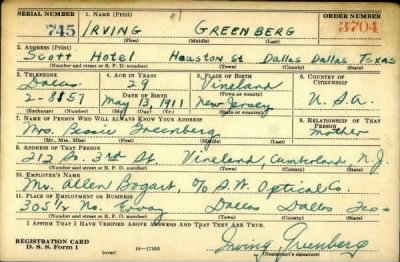 SERIAL NUMBER 1. NAME (Print) ORDER NUMBER
745 IRVING GREENBERG 3704
(First) (Middle) (Last)
2. ADDRESS (Print)
Scott Hotel Houston St Dallas Dallas Texas
(Number and street or R. F. D. number) (Town) (County) (State)
3. TELEPHONE 4. AGE IN YEARS 5. PLACE OF BIRTH 6. COUNTRY OF CITIZENSHIP
Dallas 29 Vineland
DATE OF BIRTH (Town or county)
2-8857 May 13, 1911 New Jersey U.S.A.
(Exchange) (Number) (Mo.) (Day) (Yr.) (State or country)
7. NAME OF PERSON WHO WILL ALWAYS KNOW YOUR ADDRESS 8. RELATIONSHIP OF THAT PERSON
Mrs. Bessie Greenberg Mother
(Mr., Mrs., Miss) (First) (Middle) (Last)
9. ADDRESS OF THAT PERSON
212 S. 3rd St. Vineland, Cumberland N.J.
(Number and street or R. F. D. number) (Town) (County) (State)
10. EMPLOYER'S NAME
Mr. Allen Bogart, c/o S.W. Optical Co.
11. PLACE OF EMPLOYMENT OR BUSINESS
305½ No. Ervay Dallas Dallas Tex
(Number and street or R. F. D. number) (Town) (County) (State)
I AFFIRM THAT I HAVE VERIFIED ABOVE ANSWERS AND THAT THEY ARE TRUE.
REGISTRATION CARD
D. S. S. Form 1 (over) 16—17105 Irving Greenberg
(Registrant's signature)